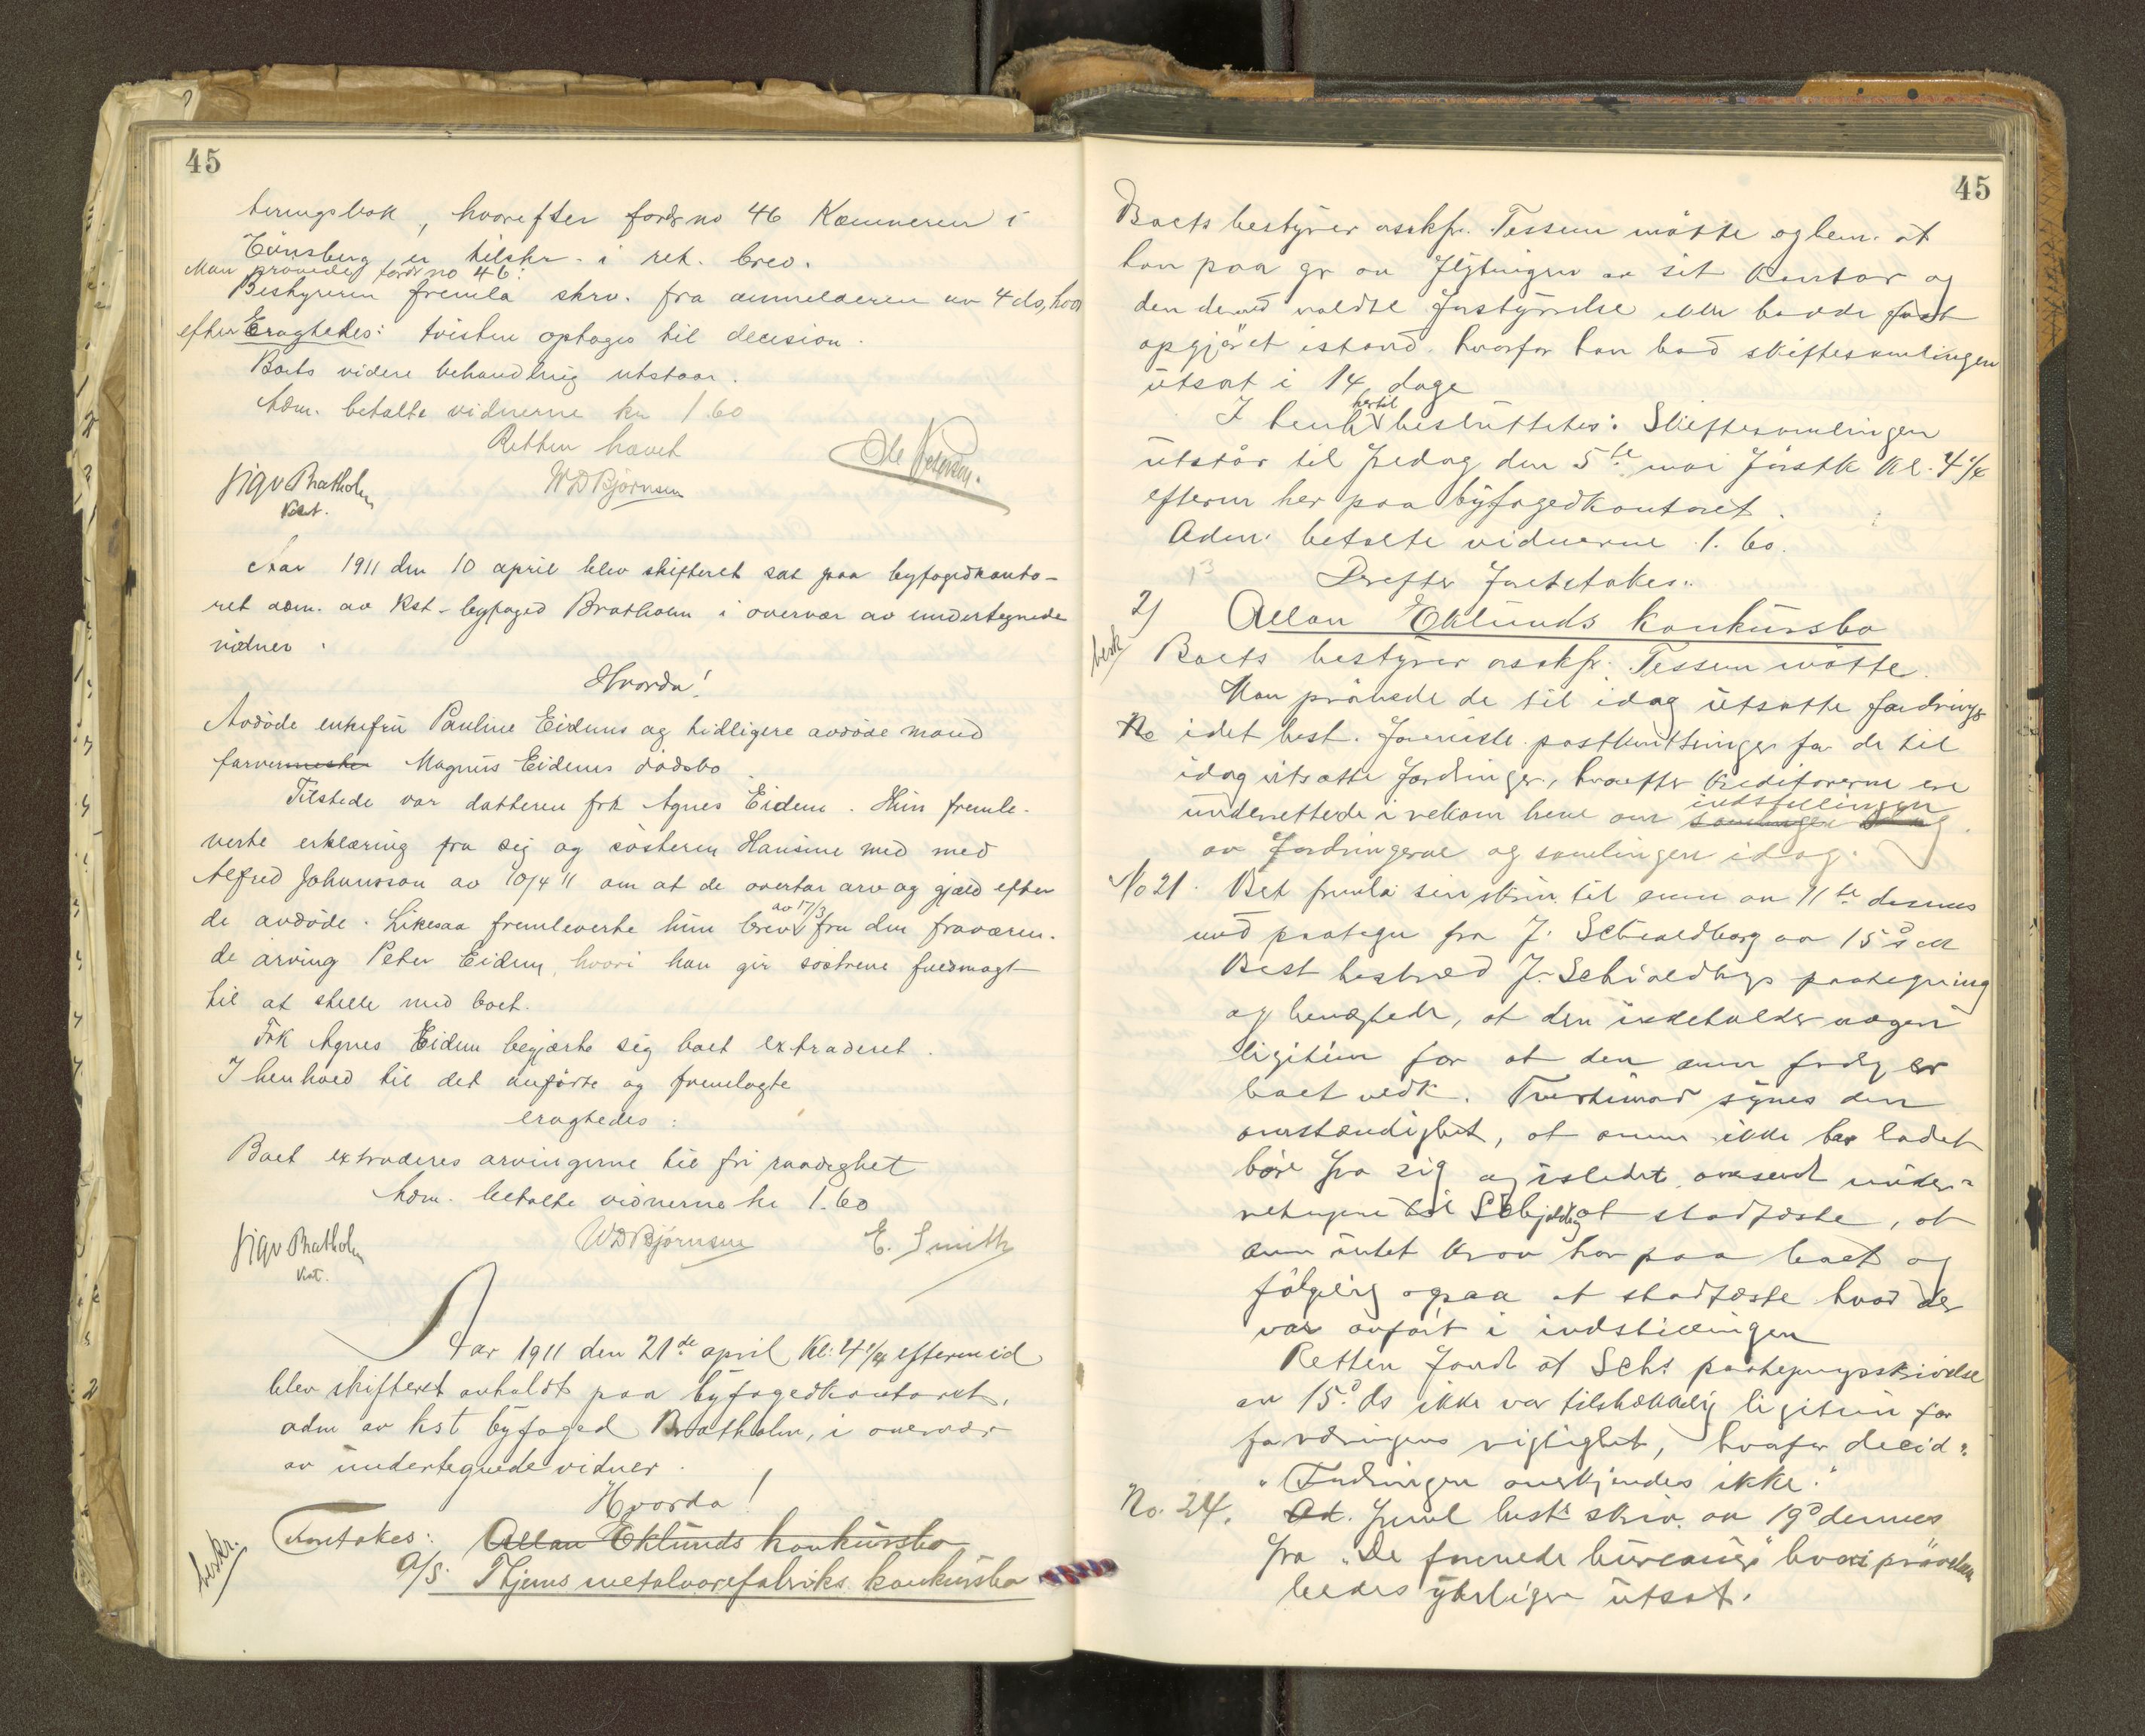 45
teringsbok, hvorefter fordr no 46 Kæmneren i
Tönsberg er tilskr. i rek. brev.
Man prövede fordr no 46:
Bestyreren fremla skrv. fra anmelderen av 4 ds, hvor
efter Eragtedes: tvisten optages til decision.
Boets videre behandling utstaar.
Adm. betalte vidnerne kr 1.60
Retten hævet
Sigv Bratholm
Kst.
WD Björnsen
Ole Petersen.
Aar 1911 den 10 april blev skifteret sat paa byfogedkonto-
ret adm. av Kst. byfoged Bratholm i overvær av undertegnede
vidner.
Hvorda!
Avdöde enkefru Pauline Eidems og tidligere avdöde mand
farvermester Magnus Eidems dödsbo
Tilstede var datteren frk Agnes Eidem. Hun fremle-
verte erklæring fra sig og sösteren Hansine med med
Alfred Johansson av 10/4 11 om at de overtar arv og gjæld efter
de avdöde. Likesaa fremleverte hun brev av 17/3 fra den fraværen-
de arving Peter Eidem, hvori han gir söstrene fuldmagt
til at stelle med boet.
Frk Agnes Eidem begjærte sig boet extraderet.
I henhold til det anförte og fremlagte
eragtedes:
Boet extraderes arvingerne til fri raadighet
Adm. betalte vidnerne kr 1.60
Sigv Bratholm
Kst.
WD Björnsen
E. Smith
Aar 1911 den 21de april Kl. 4 1/4 eftermid
blev skifteret avholdt paa byfogedkontoret,
adm av kst byfoged Bratholm, i overvær
av undertegnede vidner.
Hvorda!
beskr.
Foretakes: Allan Eklunds konkursbo
A/S. Thjems metalvarefabriks konkursbo
45
Boets bestyrer osakfr. Tessem mötte og bem. at
han paa gr av flytningen av sit kontor og
den derved voldte forstyrrelse ikke hadde faat
opgjöret istand, hvorfor han bad skiftesamlingen
utsat i 14 dage
I henh hertil besluttetes: Skiftesamlingen
utstår til fredag den 5te mai förstk Kl. 4 1/4
efterm her paa byfogedkontoret.
Adm. betalte vidnerne 1.60.
Derefter foretakes:
2) Allan Eklunds konkursbo
besk
Boets bestyrer osakfr. Tessem mötte.
Man prövede de til idag utsatte fordringer
No idet best. foreviste postkvitteringer for de til
idag utsatte fordringer, hvorefter kreditorerne ere
underrettede i rekom breve om samlingen idag indstillingen
av fordringerne og samlingen idag.
No 21. Best fremla sin skriv. til anm av 11te dennes
med paategn fra J. Schjoldborg av 15 ds
Best bestred J. Schjoldborgs paategning
og benegtede, at den indeholder nogen
ligitim for at den anm fordg er
boet vedk. Tvertimod synes den
omstændighet, at anm ikke har ladet
höre fra sig og istedet oversendt under-
retningen til Schjoldbg at stadfæste, at
anm intet krav har paa boet og
fölgelig ogsaa at stadfæste hvad der
var anfört i indstillingen
Retten fandt at Sch.s paategningsskrivelse
av 15 ds ikke var tilstrækkelig ligitim for
fordringens rigtighet, hvorfor decid:
"Fordringen anerkjendes ikke."
No. 24. Ad. freml best skriv. av 19 dennes
fra "De forenede bureauer" hvori prövelsen
bedes yderligere utsat.